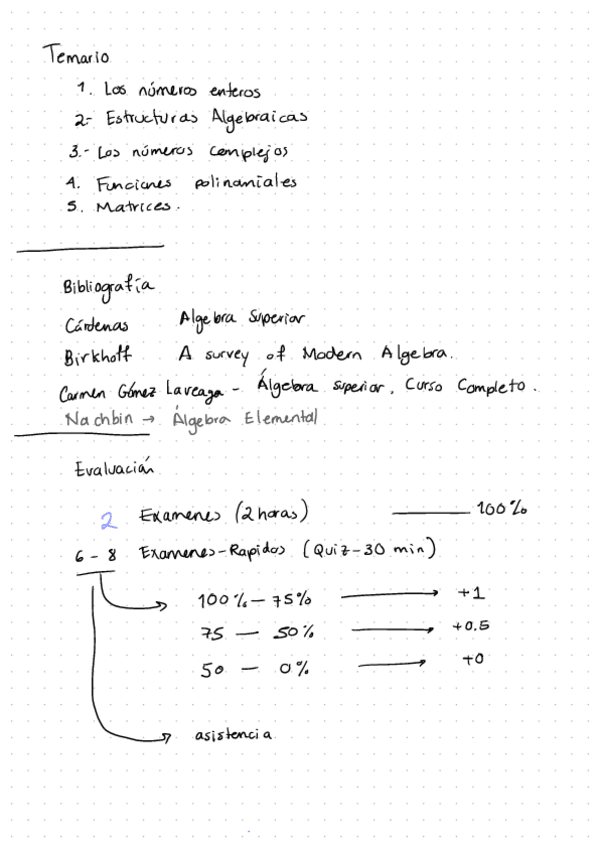 Temario
1. Los números enteros
2.- Estructuras Algebraicas
3.- Los números complejos
4. Funciones polinomiales
5. Matrices.
Bibliografía
Cárdenas Algebra Superior
Birkhoff A survey of Modern Algebra.
Carmen Gómez Laveaga - Álgebra superior, Curso Completo.
Nachbin → Álgebra Elemental
Evaluación
2 Examenes (2 horas) 100%
6 - 8 Examenes-Rapidos (Quiz-30 min)
100% - 75% → +1
75 - 50% → +0.5
50 - 0% → +0
asistencia